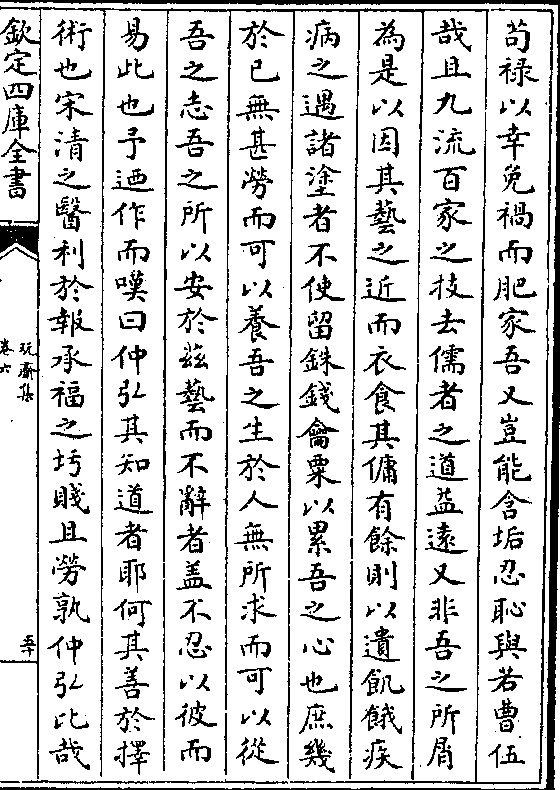 苟禄以幸免禍而肥家吾又豈能含垢忍恥與若曹伍
哉且九流百家之技去儒者之道益逺又非吾之所屑
為是以因其藝之近而衣食其傭有餘則以遺飢餓疾
病之遇諸塗者不使留銖錢龠粟以累吾之心也庶幾
於已無甚勞而可以養吾之生於人無所求而可以從
吾之志吾之所以安於兹藝而不辭者盖不忍以彼而
易此也予迺作而嘆曰仲弘其知道者耶何其善於擇
術也宋清之醫利於報承福之圬賤且勞孰仲弘比哉
欽定四庫全書
玩齋集
卷六
五十